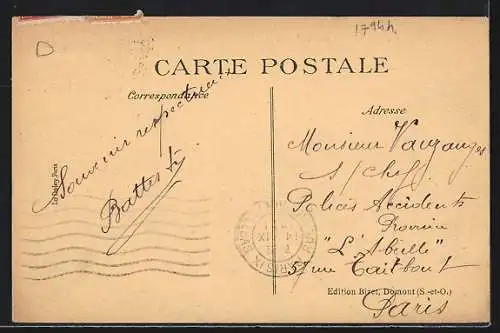 D
1794h
CARTE POSTALE
Correspondance
Adresse
Souvenir respectueux
Monsieur Vauzanges
s/chef
Polices Accidents
Province
"L'Abeille"
57 rue Taitbout
Paris
Edition Bizet, Domont (S.-et-O.)